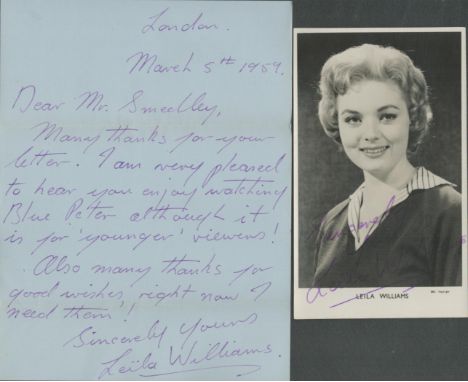 London.
March 5th 1959.
Dear Mr. Smedley,
Many thanks for your
letter. I am very pleased
to hear you enjoy watching
Blue Peter although it
is for 'younger' viewers!
Also many thanks for
good wishes, right now I
need them!
Sincerely Yours
Leila Williams.
Sincerely
LEILA WILLIAMS